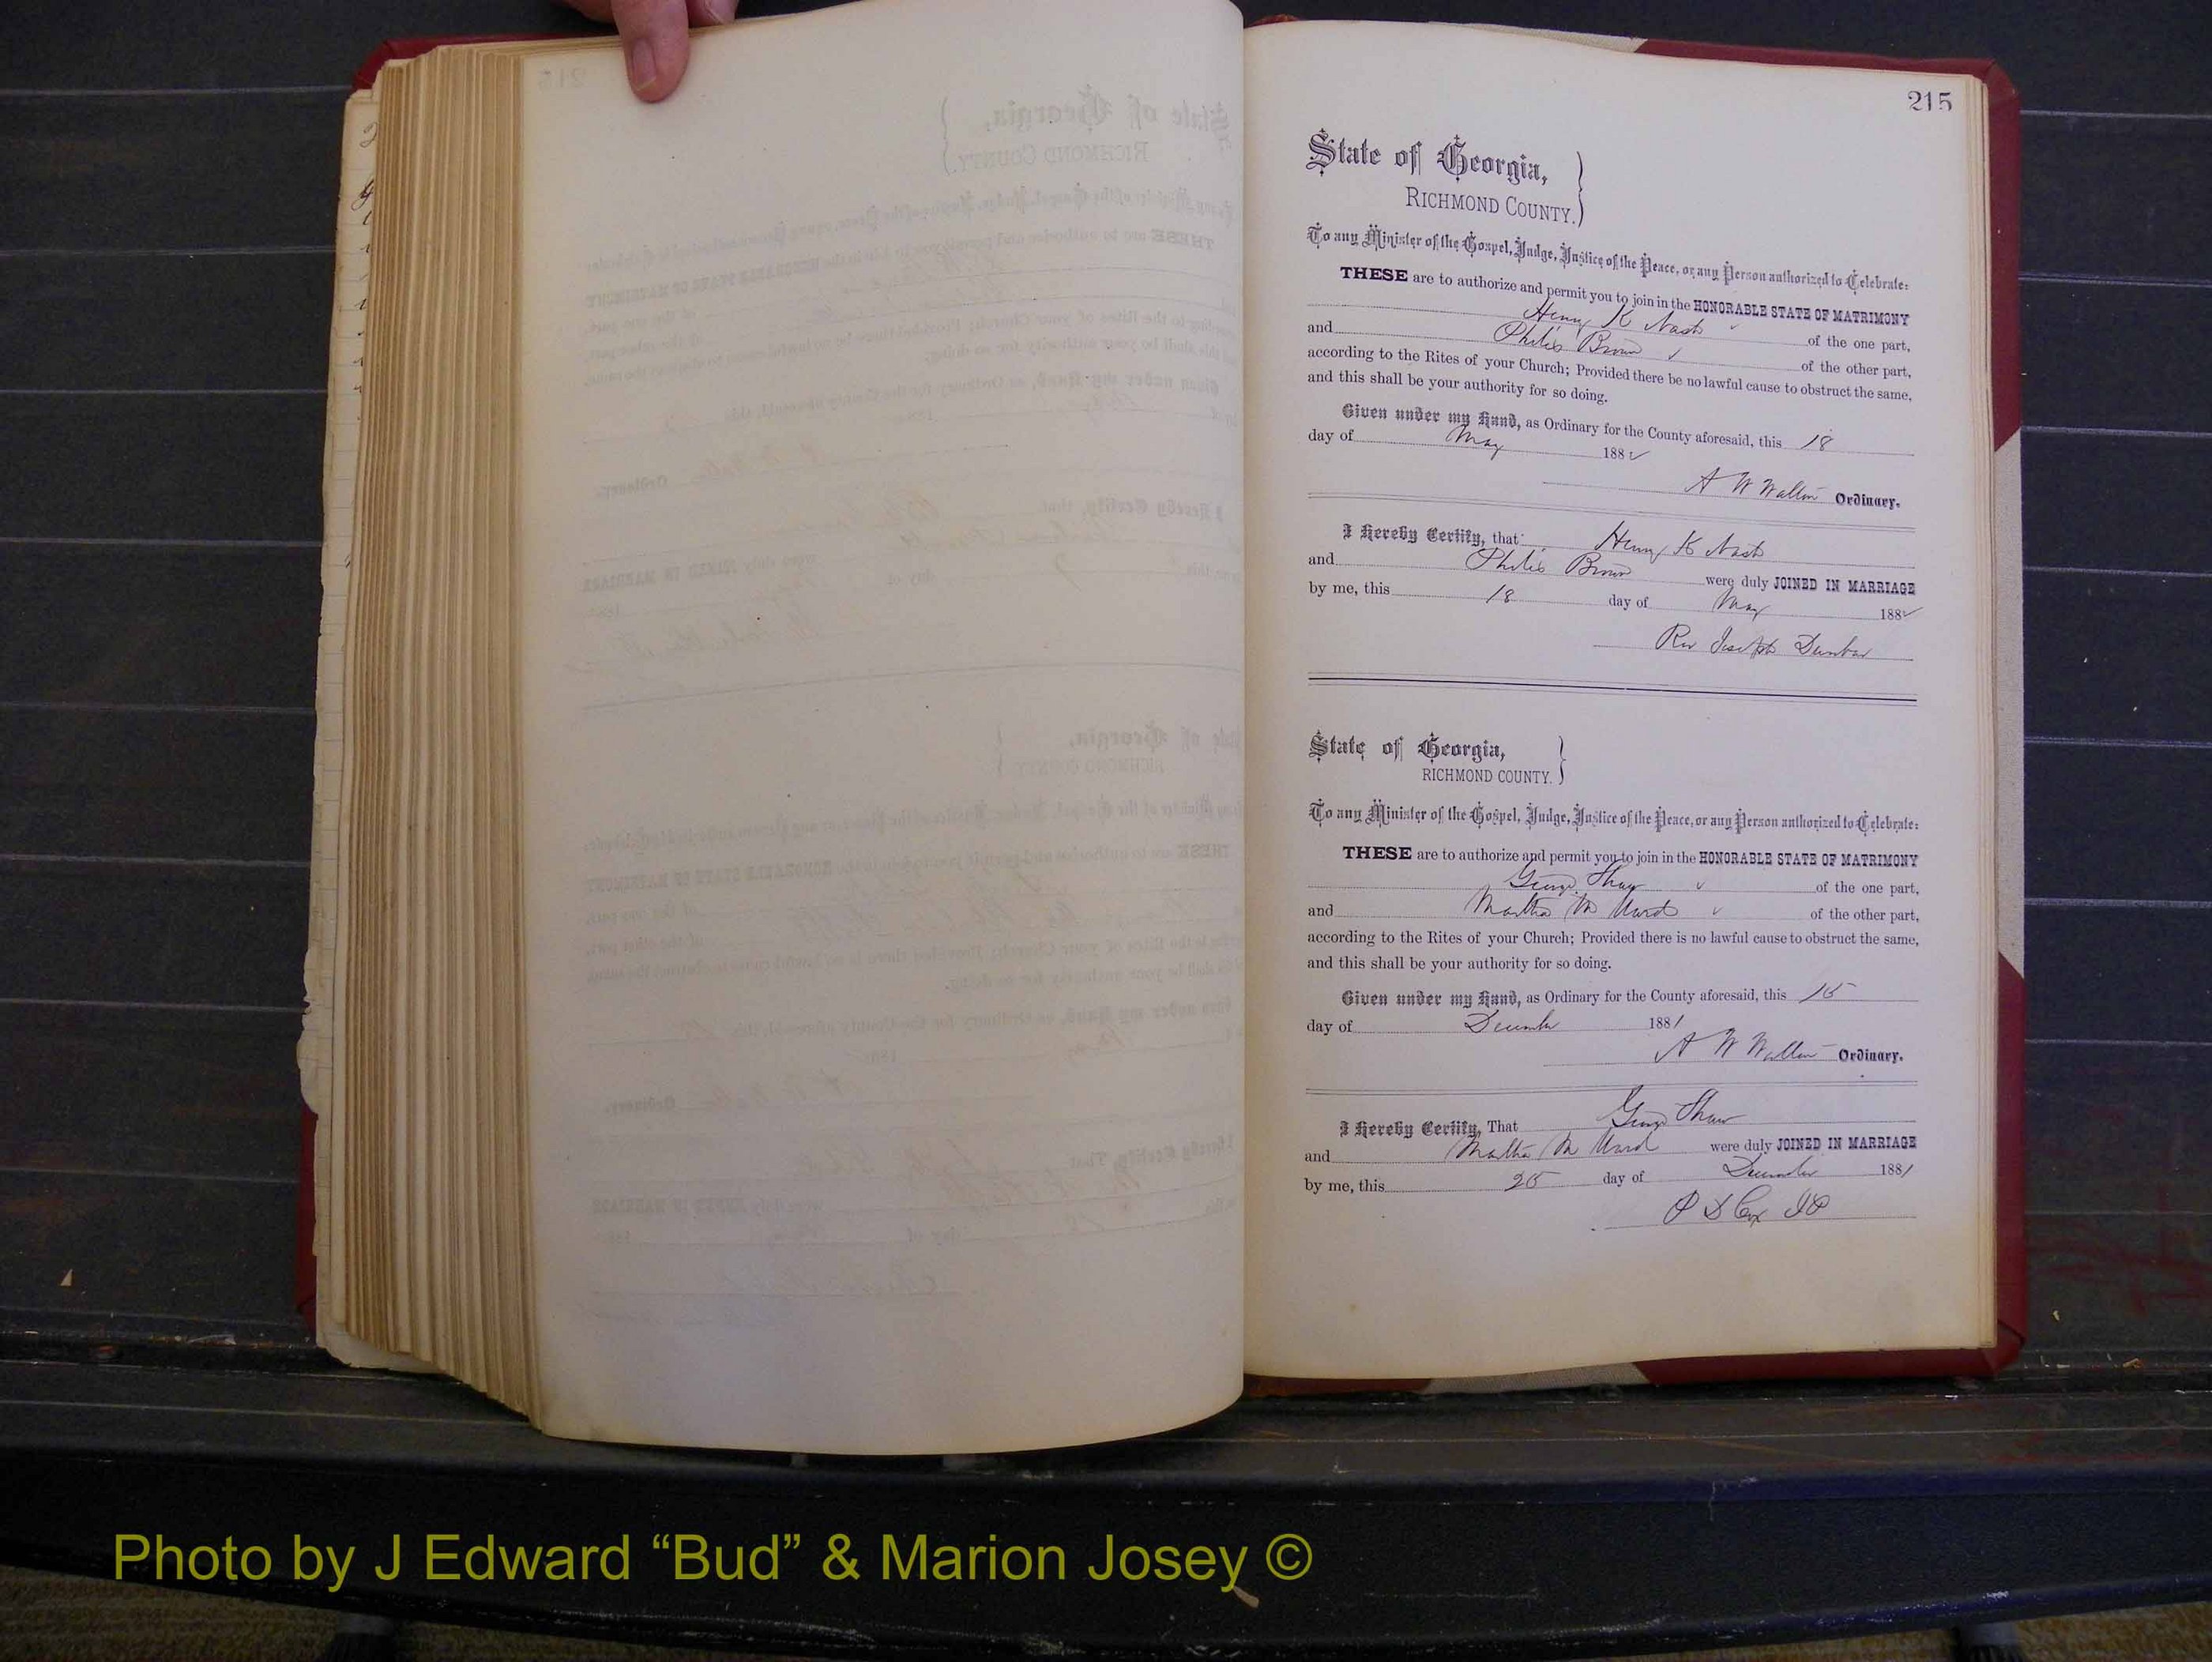 215
State of Georgia,
RICHMOND COUNTY.
To any Minister of the Gospel, Judge, Justice of the Peace, or any Person authorized to Celebrate:
THESE are to authorize and permit you to join in the HONORABLE STATE OF MATRIMONY
Henry K Nash of the one part,
and Philis Brown of the other part,
according to the Rites of your Church; Provided there be no lawful cause to obstruct the same,
and this shall be your authority for so doing.
Given under my Hand, as Ordinary for the County aforesaid, this 18
day of May 1882
A W Walton Ordinary.
I Hereby Certify, that Henry K Nash
and Philis Brown were duly JOINED IN MARRIAGE
by me, this 18 day of May 1882
Rev Joseph Dunbar
State of Georgia,
RICHMOND COUNTY.
To any Minister of the Gospel, Judge, Justice of the Peace, or any Person authorized to Celebrate:
THESE are to authorize and permit you to join in the HONORABLE STATE OF MATRIMONY
George Shaw of the one part,
and Martha M Ward of the other part,
according to the Rites of your Church; Provided there is no lawful cause to obstruct the same,
and this shall be your authority for so doing.
Given under my Hand, as Ordinary for the County aforesaid, this 15
day of December 1881
A W Walton Ordinary.
I Hereby Certify, That George Shaw
and Martha M Ward were duly JOINED IN MARRIAGE
by me, this 25 day of December 1881
P D Cox JP
Photo by J Edward “Bud” & Marion Josey ©